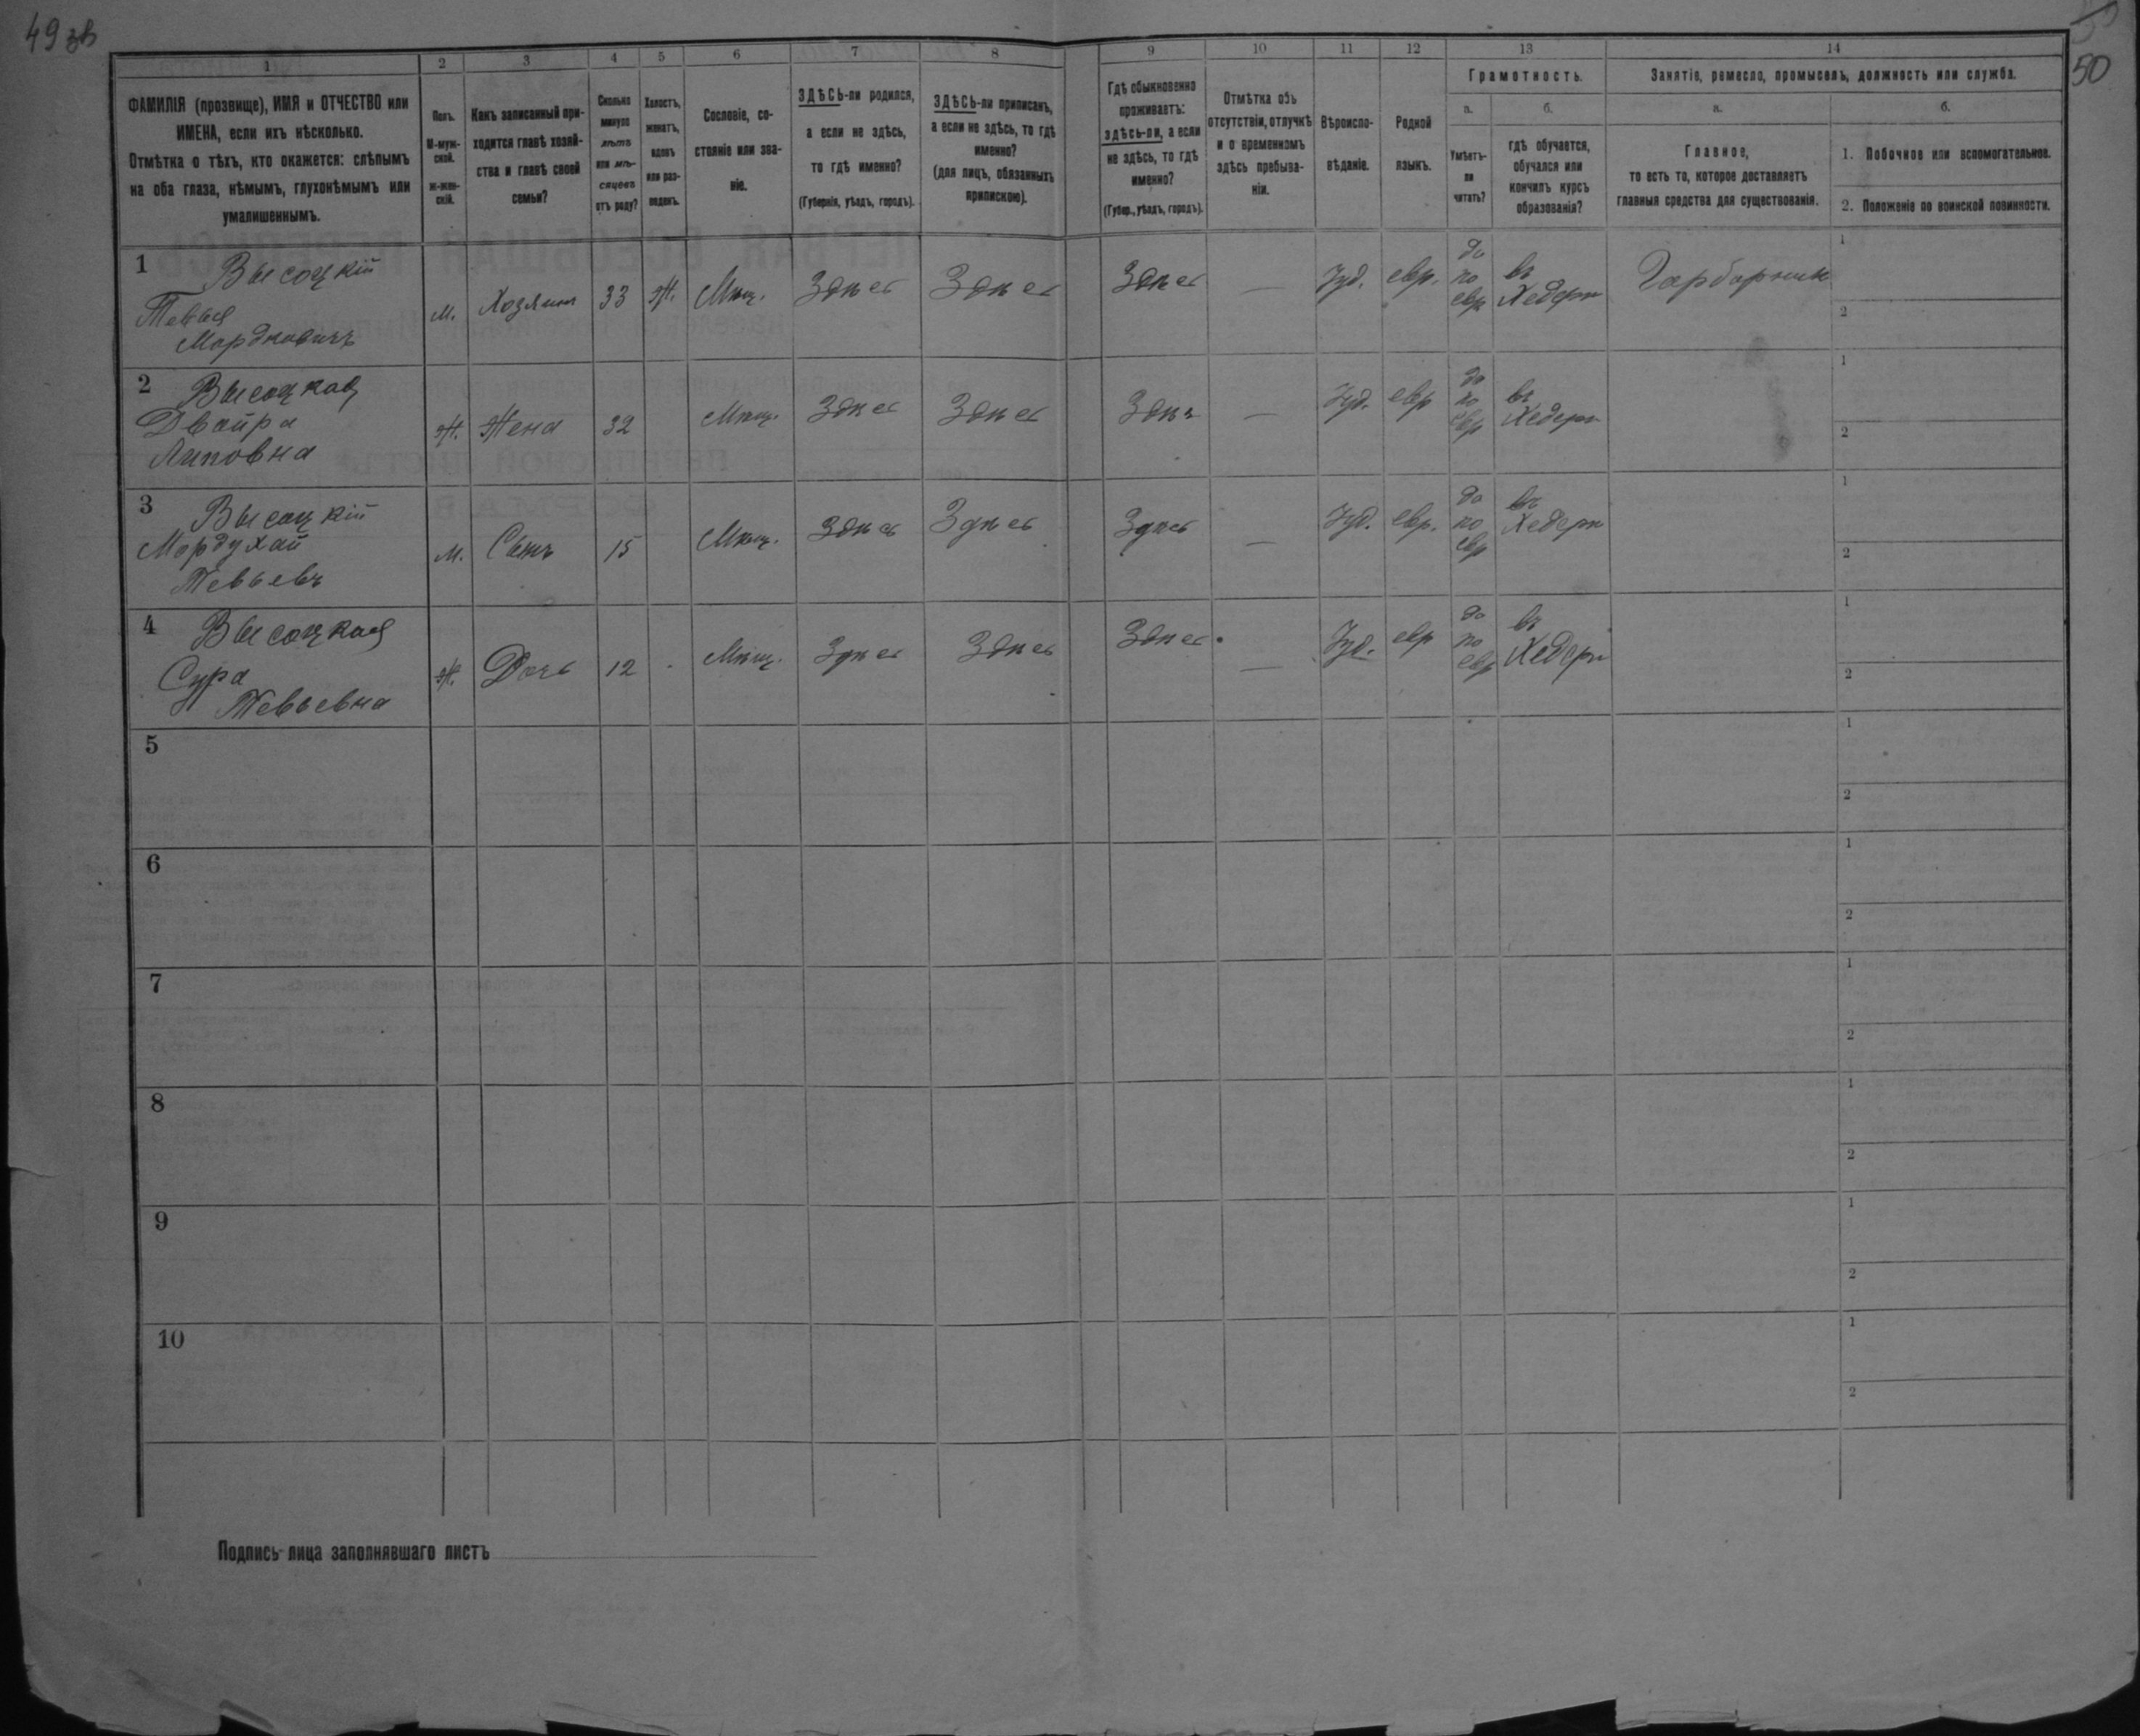 49 зв
50
1 2 3 4 5 6 7 8 9 10 11 12 13 14
ФАМИЛІЯ (прозвище), ИМЯ и ОТЧЕСТВО или
ИМЕНА, если ихъ нѣсколько.
Отмѣтка о тѣхъ, кто окажется: слѣпымъ
на оба глаза, нѣмымъ, глухонѣмымъ или
умалишеннымъ.
Полъ.
М-муж-
ской.
ж-жен-
скій.
Какъ записанный при-
ходится главѣ хозяй-
ства и главѣ своей
семьи?
Сколько
минуло
лѣтъ
или мѣ-
сяцевъ
отъ роду?
Холостъ,
женатъ,
вдовъ
или раз-
веденъ.
Сословіе, со-
стояніе или зва-
ніе.
ЗДѢСЬ-ли родился,
а если не здѣсь,
то гдѣ именно?
(Губернія, уѣздъ, городъ).
ЗДѢСЬ-ли приписанъ,
а если не здѣсь, то гдѣ
именно?
(для лицъ, обязанныхъ
припискою).
Гдѣ обыкновенно
проживаетъ:
здѣсь-ли, а если
не здѣсь, то гдѣ
именно?
(Губер., уѣздъ, городъ).
Отмѣтка объ
отсутствіи, отлучкѣ
и о временномъ
здѣсь пребыва-
ніи.
Вѣроиспо-
вѣданіе.
Родной
языкъ.
Грамотность.
а.
Умѣетъ-
ли
читать?
б.
гдѣ обучается,
обучался или
кончилъ курсъ
образованія?
Занятіе, ремесло, промыселъ, должность или служба.
а.
Главное,
то есть то, которое доставляетъ
главныя средства для существованія.
б.
1. Побочное или вспомогательное.
2. Положеніе по воинской повинности.
1 Высоцкій
Тевья
Мордковичъ
м.
Хозяинъ
33
ж.
Мѣщ.
Здѣсь
Здѣсь
Здѣсь
—
Іуд.
евр.
да
по
евр
въ
Хедерѣ
Гарбарникъ
1
2
2 Высоцкая
Двойра
Липовна
ж.
Жена
32
Мѣщ.
Здѣсь
Здѣсь
Здѣсь
—
Іуд.
евр
да
по
евр
въ
Хедерѣ
1
2
3 Высоцкій
Мордухай
Тевьевъ
м.
Сынъ
15
Мѣщ.
Здѣсь
Здѣсь
Здѣсь
—
Іуд.
евр.
да
по
евр
въ
Хедерѣ
1
2
4 Высоцкая
Сура
Тевьевна
ж.
Дочь
12
Мѣщ.
Здѣсь
Здѣсь
Здѣсь
—
Іуд.
евр
да
по
евр
въ
Хедерѣ
1
2
5
1
2
6
1
2
7
1
2
8
1
2
9
1
2
10
1
2
Подпись лица заполнявшаго листъ